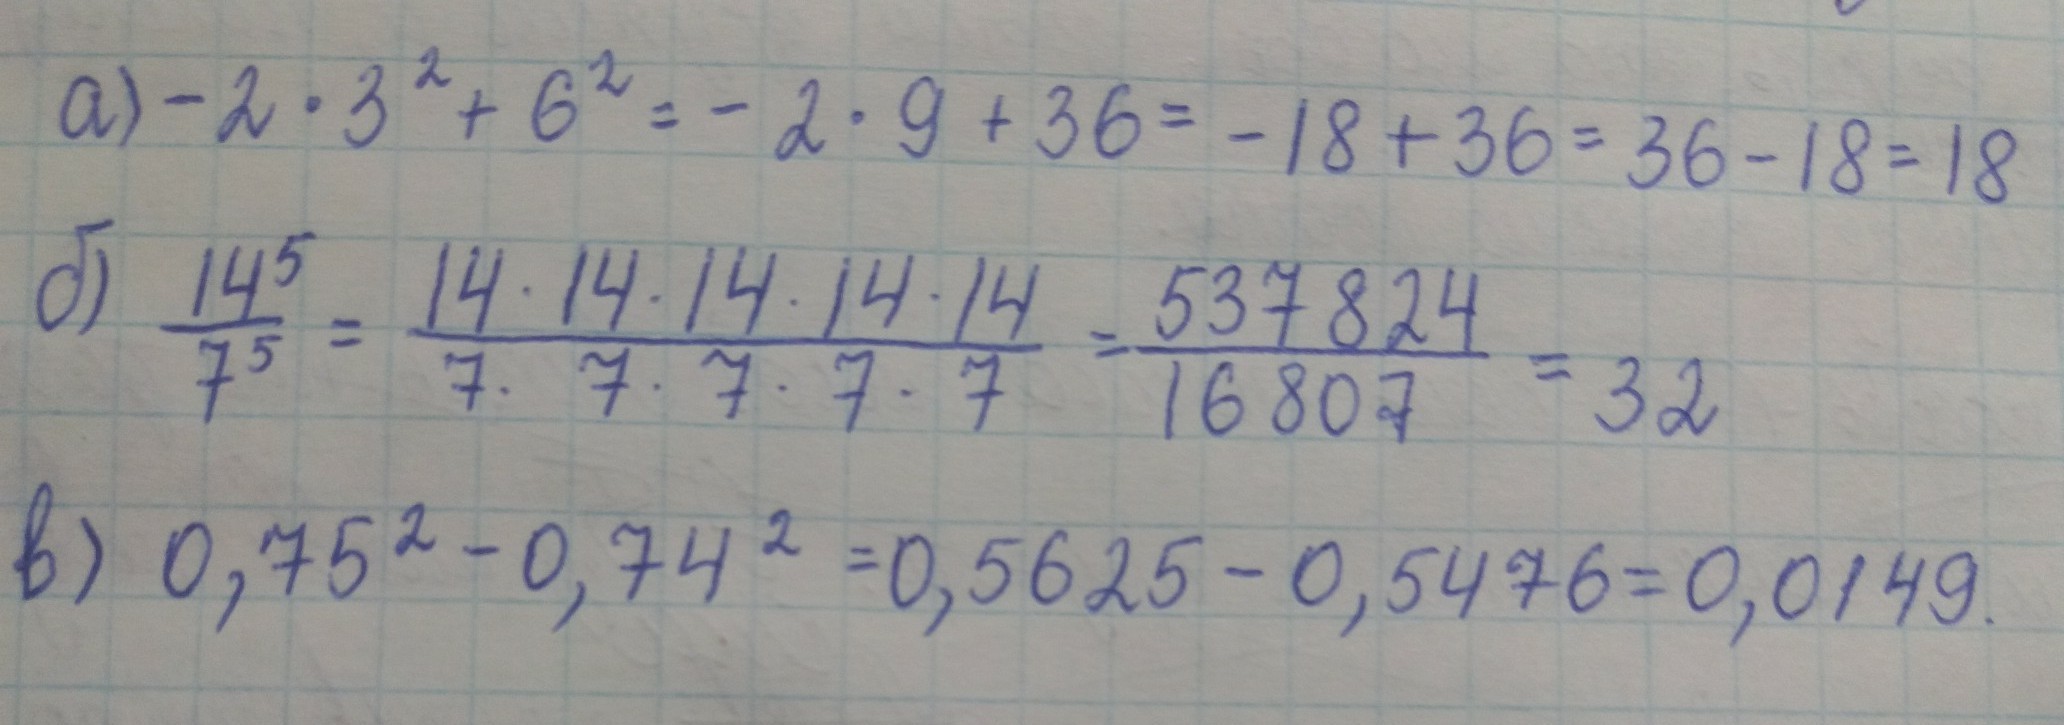 а) - 2 · 3² + 6² = - 2 · 9 + 36 = - 18 + 36 = 36 - 18 = 18
б) 14⁵/7⁵ = 14 · 14 · 14 · 14 · 14/7 · 7 · 7 · 7 · 7 = 537824/16807 = 32
в) 0,75² - 0,74² = 0,5625 - 0,5476 = 0,0149.